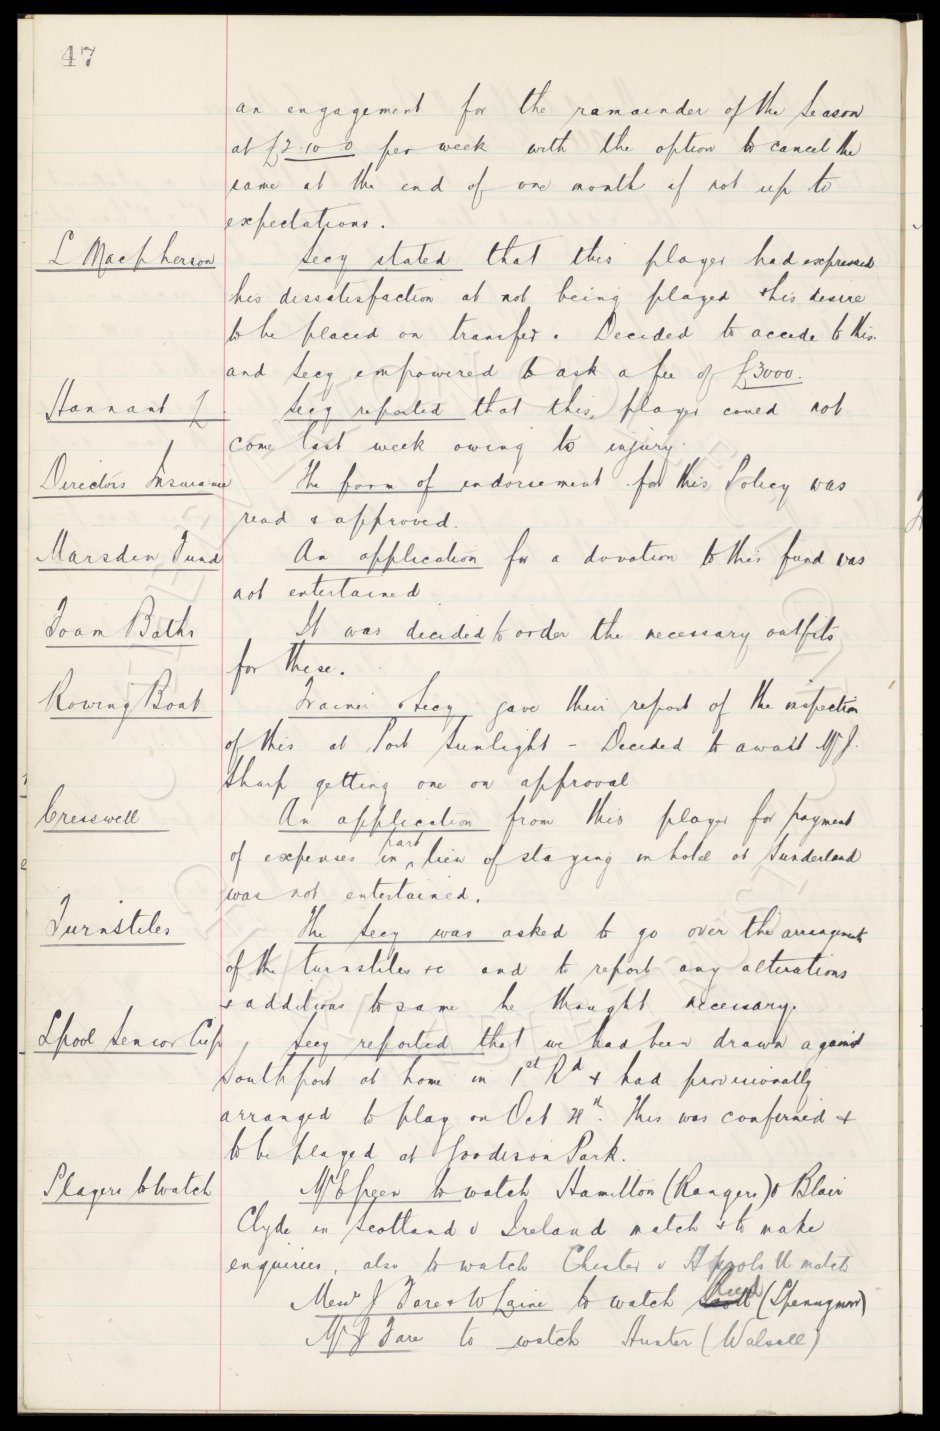 47
an engagement for the ramainder of the Season
at £2.10.0 per week with the option to cancel the
same at the end of one month if not up to
expectations.
L Macpherson Secy stated that this player had expressed
his dissatisfaction at not being played & his desire
to be placed on transfer. Decided to accede to this.
and Secy empowered to ask a fee of £3000.
Hannant Secy reported that this player coued not
come last week owing to injury.
Directors Insurance The form of indorsement for this Policy was
read & approved.
Marsden Fund An application for a donation to this fund was
not entertained
Foam Baths It was decided to order the necessary outfits
for these.
Rowing Boat Trainer & Secy gave their report of the inspection
of this at Port Sunlight - Decided to await Mr J.
Sharp getting one on approval
Cresswell An application from this player for payment
of expenses in part lieu of staying in hotel at Sunderland
was not entertained.
Turnstiles The Secy was asked to go over the arrangements
of the turnstiles &c and to report any alterations
& additions to same he thought necessary.
Lpool Senior Cup Secy reported that we had been drawn against
Southport at home in 1st Rd & had provisionally
arranged to play on Oct This was confirmed &
to be played at Goodison Park.
Players to Watch Mr E Green to watch Hamilton (Rangers) & Blair
Clyde in Scotland v Ireland match & to make
enquiries, also to watch Chester v Hpools U match
Messrs J Fare & W Gaine to watch (Spennymoor)
Mr J Fare to watch Hunter (Walsall)